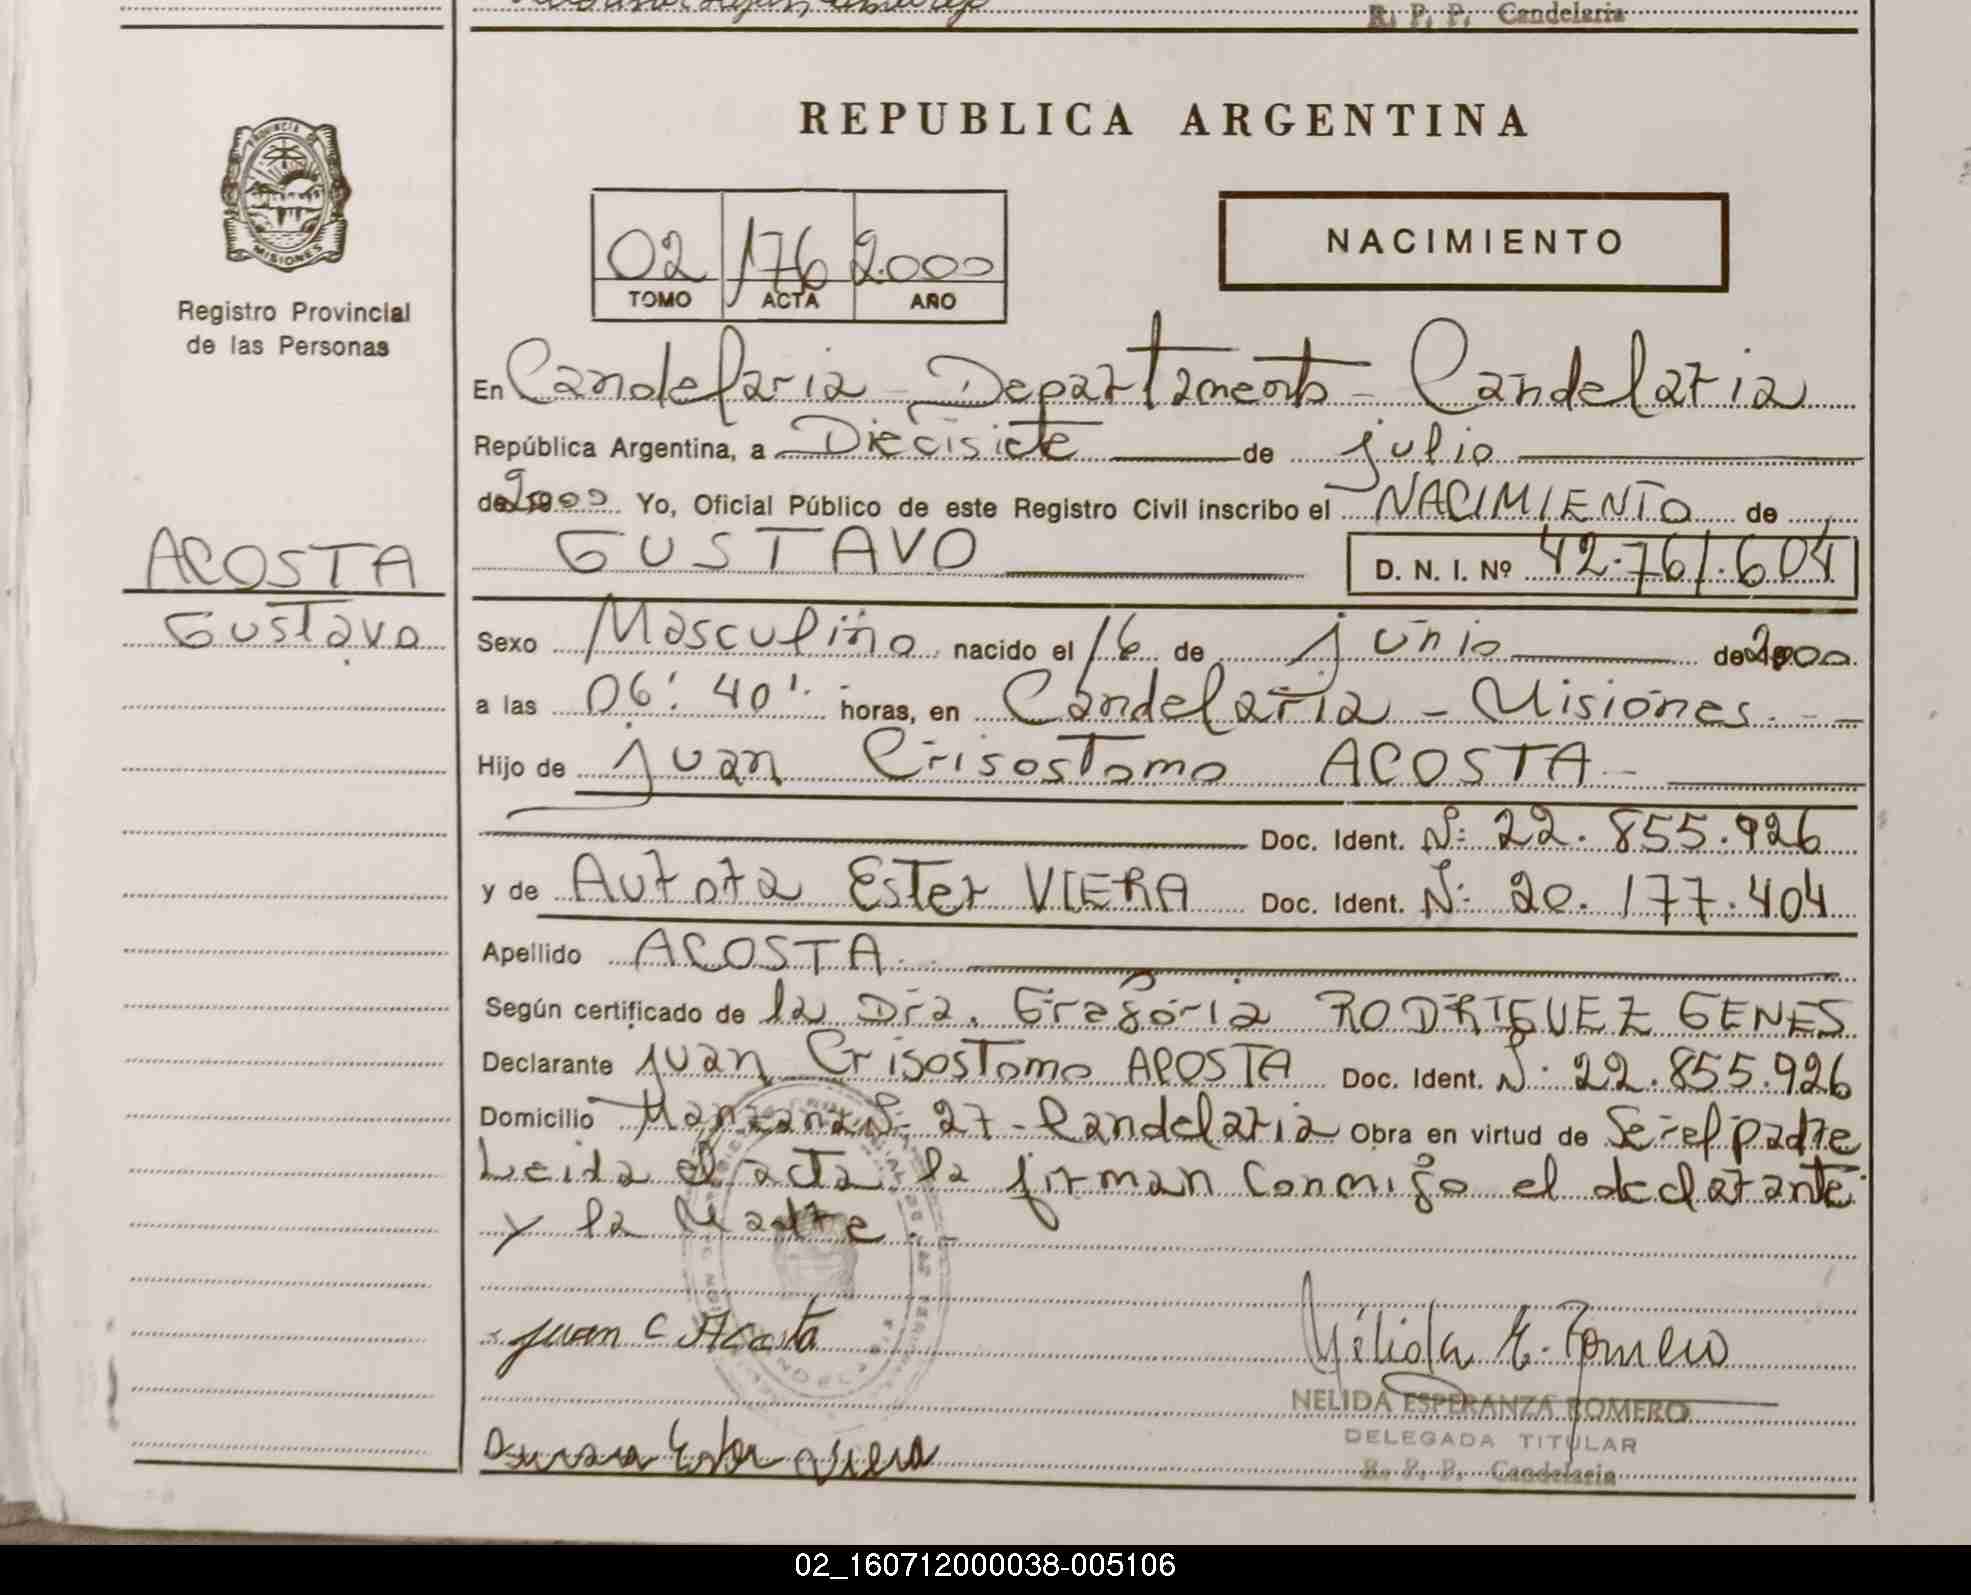 R. P. P. Candelaria
REPUBLICA ARGENTINA
PROVINCIA DE
MISIONES
Registro Provincial
de las Personas
02 176 2.000
TOMO ACTA AÑO
NACIMIENTO
En Candelaria - Departamento - Candelaria
República Argentina, a Diecisiete de julio
de 2.000 Yo, Oficial Público de este Registro Civil inscribo el NACIMIENTO de
ACOSTA
Gustavo
GUSTAVO D. N. I. Nº 42.761.604
Sexo Masculino nacido el 16 de junio de 2.000.
a las 06': 40'. horas, en Candelaria - Misiones. - -
Hijo de Juan Crisostomo ACOSTA -
Doc. Ident. N: 22.855.926
y de Aurora Ester VIERA Doc. Ident. N: 20.177.404
Apellido ACOSTA.
Según certificado de la Dra. Gregoria RODRIGUEZ GENES
Declarante Juan Crisostomo ACOSTA Doc. Ident. N: 22.855.926
Domicilio Manzana N: 27 - Candelaria Obra en virtud de Ser el padre
Leida el acta, la firman conmigo el declarante
y la Madre
Juan C Acosta
Nélida E. Romero
NELIDA ESPERANZA ROMERO
DELEGADA TITULAR
R. P. P. Candelaria
Aurora Ester Viera
02_160712000038-005106